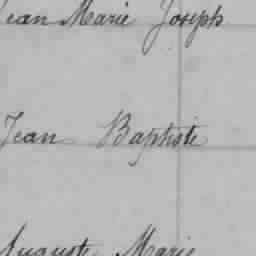 Jean Marie Joseph
Jean Baptiste
Auguste Marie